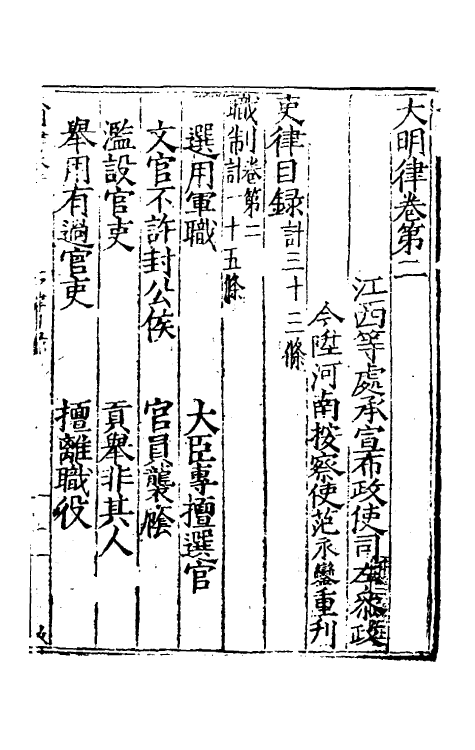 大明律卷第二
江西等處承宣布政使司左參政
今陞河南按察使范永鑾重刊
吏律目錄計三十三條
職制卷第二
職制計一十五條
選用軍職 大臣專擅選官
文官不許封公侯 官員襲廕
濫設官吏 貢舉非其人
舉用有過官吏 擅離職役